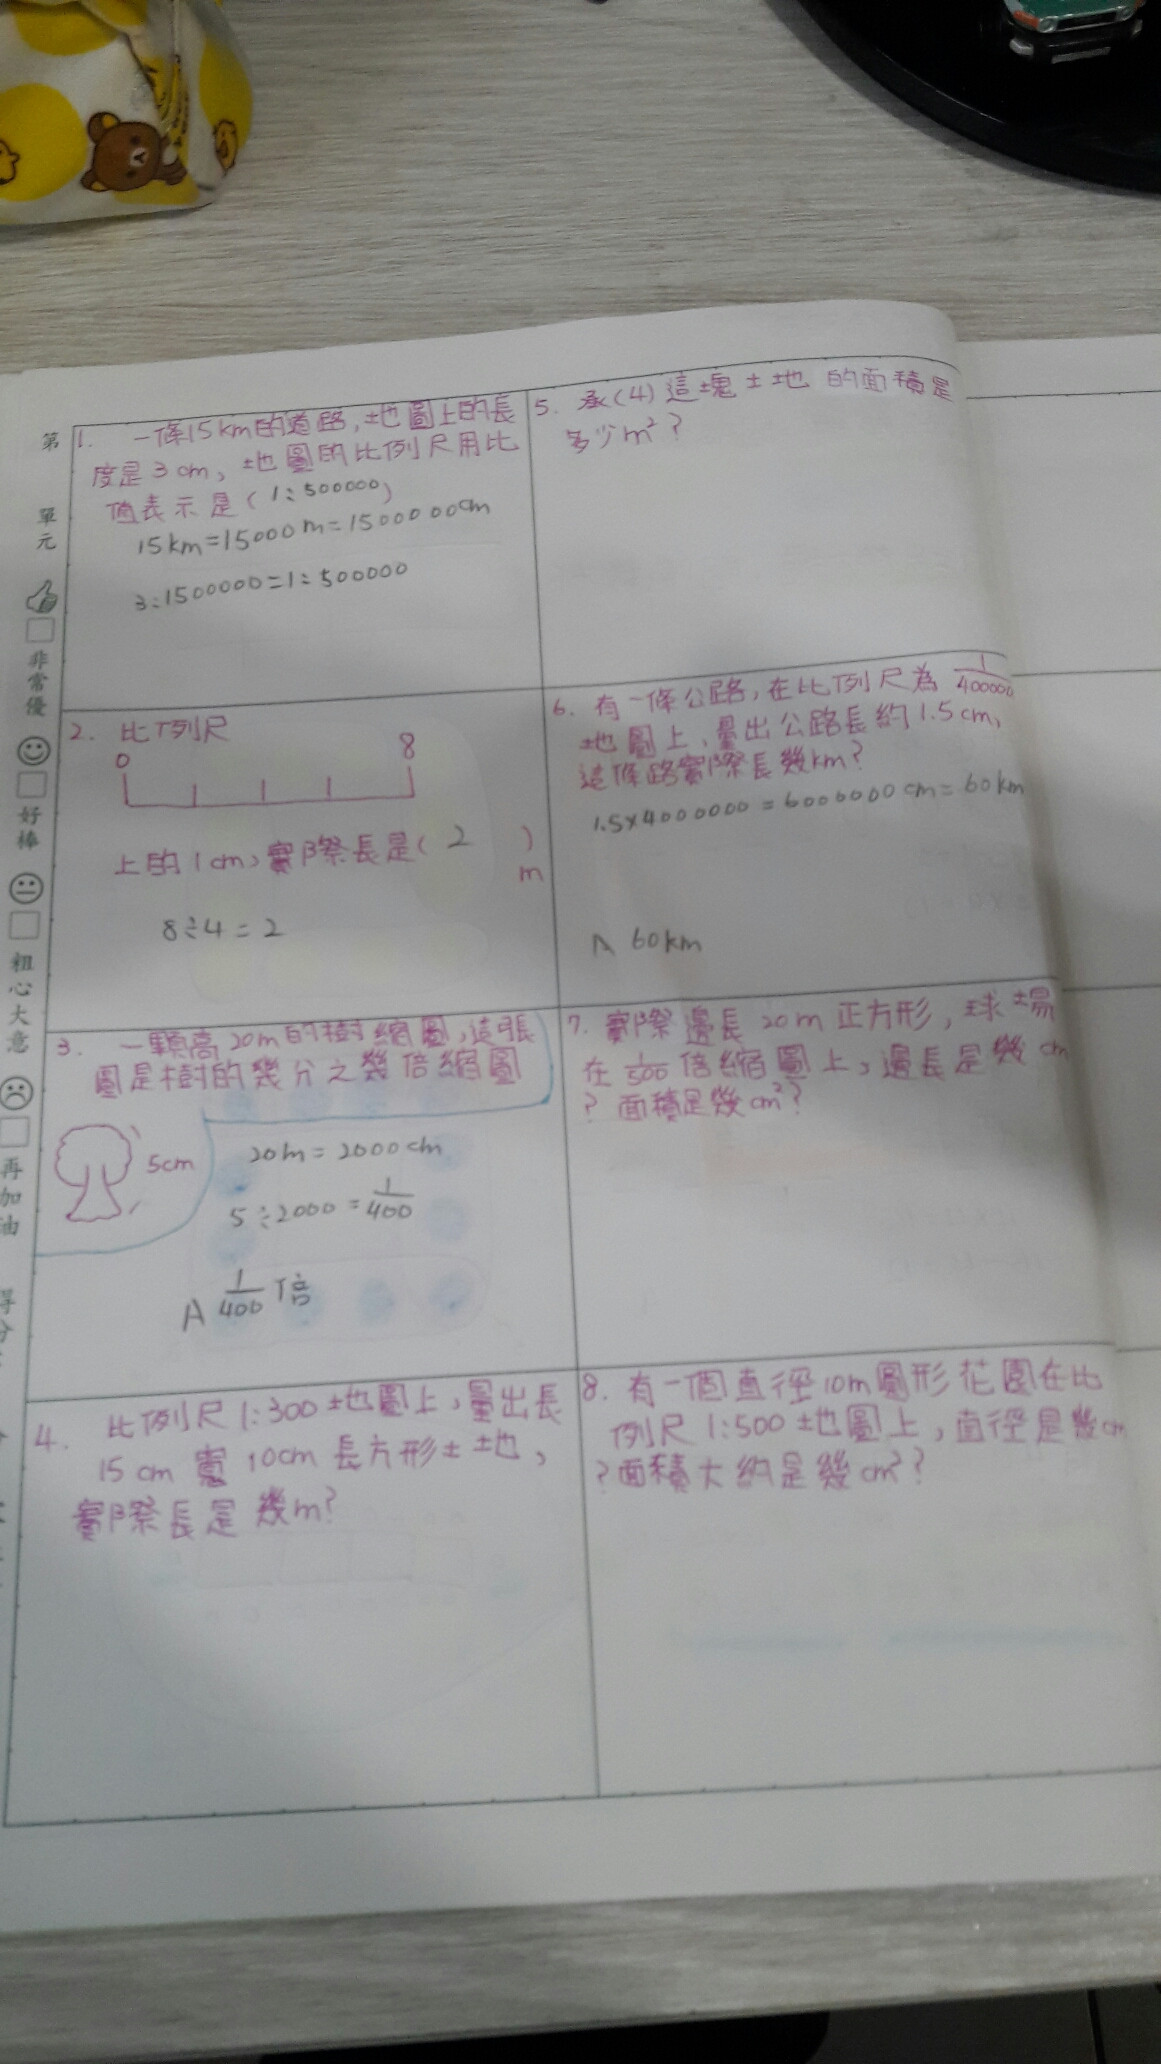 第
單
元
非
常
優
好
棒
粗
心
大
意
再
加
油
得
分
1. 一條15km的道路,地圖上的長
度是3cm,地圖的比例尺用比
值表示是(1:500000)
15km=15000m=1500000cm
3:1500000=1:500000
2. 比例尺
0 8
上的1cm,實際長是( 2 )
m
8÷4=2
3. 一顆高20m的樹縮圖,這張
圖是樹的幾分之幾倍縮圖
5cm
20m=2000cm
5÷2000=1/400
A 1/400倍
4. 比例尺1:300地圖上,量出長
15cm寬10cm長方形土地,
實際長是幾m?
5. 承(4)這塊土地的面積是
多少m²?
6. 有一條公路,在比例尺為1/400000
地圖上,量出公路長約1.5cm,
這條路實際長幾km?
1.5×4000000=6000000cm=60km
A 60km
7. 實際邊長20m正方形,球場
在1/500倍縮圖上,邊長是幾cm
?面積是幾cm²?
8. 有一個直徑10m圓形花園在比
例尺1:500地圖上,直徑是幾cm
?面積大約是幾cm²?